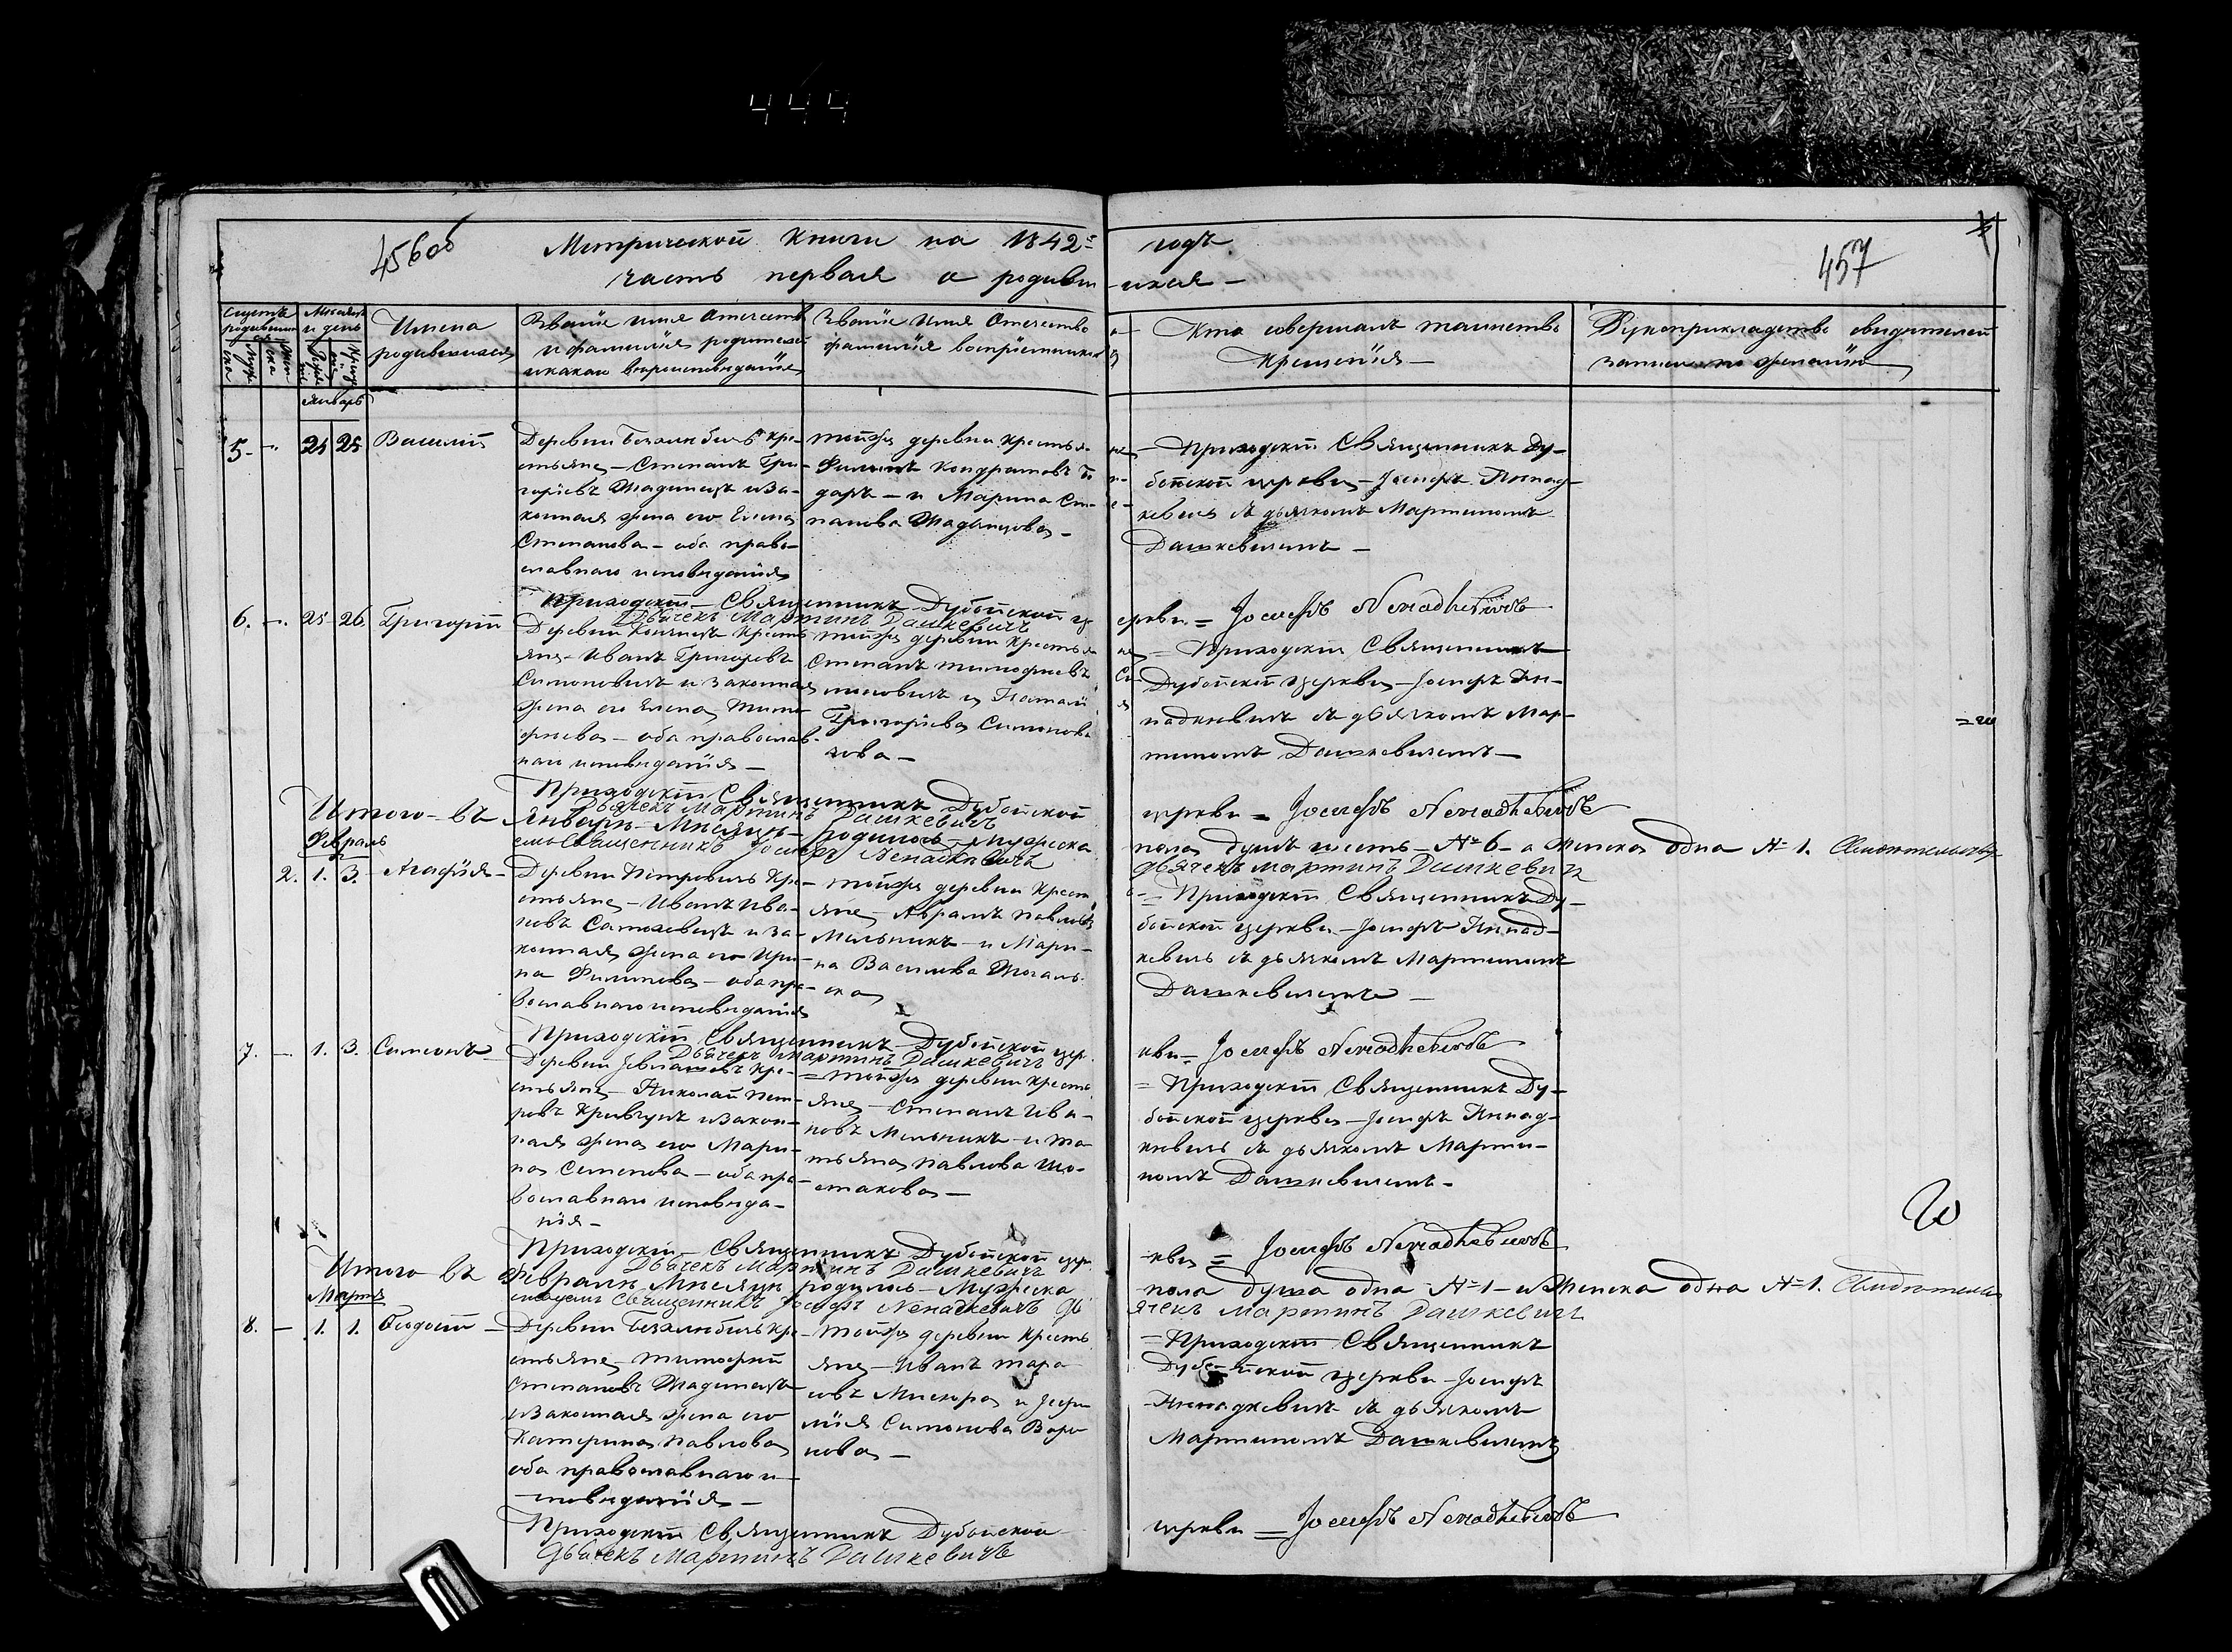 444
456об
Метрической Книги на 1842й годъ
457
часть первая о родившихся —
Счетъ родившихся
Мужеска
Женска
Месяцъ и день
Рожденія
Крещенія
Имена родившихся
Званіе имя Отчество и фамилія родителей и какого вероисповеданія
Званіе Имя Отчество фамилія воспріемниковъ
Кто совершалъ таинство Крещенія —
Рукоприкладство свидетелей записи по желанію
Январь
5. — 25 25 Василій
Деревни
стьяне — Степанъ Гри-
горіевъ Жадинецъ и за-
конная жена его Елена
Степанова — оба право-
славного исповеданія
тойже деревни крестья-
не — Филипъ Кондратовъ
и Марина Сте-
панова Жадинцова —
— Приходскій Священникъ Ду-
бойской церкви — Іосифъ Ненад-
кевичъ съ дьячкомъ Мартиномъ
Дашкевичемъ —
Приходскій — Священникъ Дубойской церкви = Іосифъ Ненадкевичъ
Дьячекъ Мартинъ Дашкевичъ
6. — 25 26 Григорій
Деревни крестья-
яне — Иванъ Григорьевъ
Симоновичъ и законная
жена его Елена Тимо-
феева — оба православ-
наго исповеданія —
тойже деревни крестья-
не
Степанъ Тимофеевъ Си-
моновичъ и Наталія
Григоріева Симонови-
чова —
— Приходскій Священникъ
Дубойской церкви — Іосифъ Не-
надкевичъ съ дьячкомъ Мар-
тиномъ Дашкевичемъ —
Приходскій Священникъ Дубойской церкви = Іосифъ Ненадкевичъ
Дьячекъ Мартинъ Дашкевичъ
Итого — въ Январе — Месяце — родилось — Мужеска пола душъ шесть — № 6 — а Женска одна № 1.
Священникъ Іосифъ Ненадкевичъ дьячекъ Мартинъ Дашкевичъ
Февраль
2. 1. 3. Агафія —
Деревни Петровичъ Кре-
стьяне — Иванъ Ива-
новъ и за-
конная жена его Ири-
на Филипова — оба пра-
вославнаго исповеданія
— тойже деревни Крест-
яне — Абрамъ Павловъ
Мельникъ — и Мари-
на Василева
= Приходскій Священникъ Ду-
бойской церкви — Іосифъ Ненад-
кевичъ съ дьячкомъ Мартиномъ
Дашкевичемъ —
Приходскій Священникъ — Дубойской церкви — Іосифъ Ненадкевичъ
Дьячекъ Мартинъ Дашкевичъ
7. — 1. 3. Симеонъ —
Деревни Кре-
стьяне — Николай Пет-
ровъ и закон-
ная жена его Мари-
на Семенова — оба пра-
вославнаго исповеда-
нія —
= тойже деревни кресть-
яне — Степанъ Ива-
новъ Мельникъ — и Та-
тьяна Павлова Шо-
стакова —
= Приходскій Священникъ Ду-
бойской церкви — Іосифъ Ненад-
кевичъ съ дьячкомъ Марти-
номъ Дашкевичемъ —
Приходскій — Священникъ Дубойской церкви = Іосифъ Ненадкевичъ
Дьячекъ Мартинъ Дашкевичъ
Итого въ Феврале Месяце родилось — Мужеска пола душа одна № 1 — и Женска одна № 1.
Священникъ Іосифъ Ненадкевичъ дьячекъ Мартинъ Дашкевичъ
Мартъ
8. — 1. 1. Феодосій —
Деревни Кре-
стьяне — Тимофей
Степановъ Жадинецъ
и Законная жена его
Катерина Павлова
оба православнаго и-
споведанія —
— тойже деревни Кресть-
яне — Иванъ Тара-
совъ Мисюра и
Симонова
— Приходскій Священникъ
Дубойской церкви — Іосифъ
Ненадкевичъ съ дьячкомъ
Мартиномъ Дашкевичемъ
Приходскій Священникъ Дубойской церкви = Іосифъ Ненадкевичъ
Дьячекъ Мартинъ Дашкевичъ